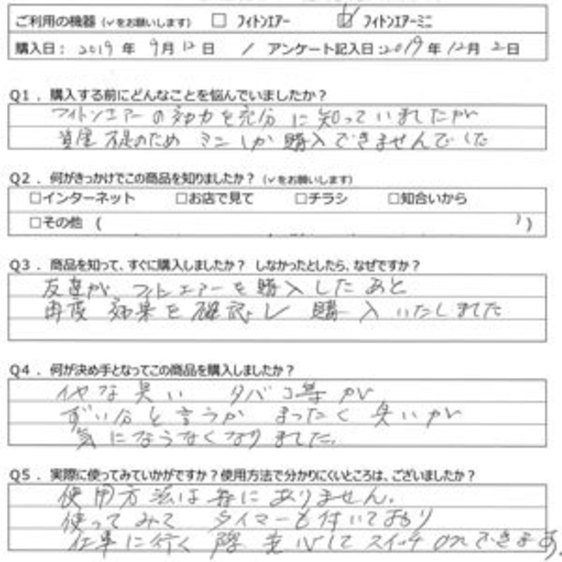 ご利用の機器（✓をお願いします） □ フィトンエアー ☑ フィトンエアーミニ
購入日：2019年 9月12日 / アンケート記入日：2019年12月2日
Q1．購入する前にどんなことを悩んでいましたか？
フィトンエアーの効力を充分に知っていましたが
資金不足のため ミニしか購入できませんでした
Q2．何がきっかけでこの商品を知りましたか？（✓をお願いします）
□インターネット □お店で見て □チラシ □知合いから
□その他（ ）
Q3．商品を知って、すぐに購入しましたか？ しなかったとしたら、なぜですか？
友達が フィトンエアーを購入したあと
再度 効果を確認し 購入いたしました
Q4．何が決め手となってこの商品を購入しましたか？
イヤな臭い タバコ等が
ずい分と言うか まったく臭いが
気にならなくなりました。
Q5．実際に使ってみていかがですか？使用方法で分かりにくいところは、ございましたか？
使用方法は 特にありません。
使ってみて タイマーも付いており
仕事に行く際 安心して スイッチONできます。